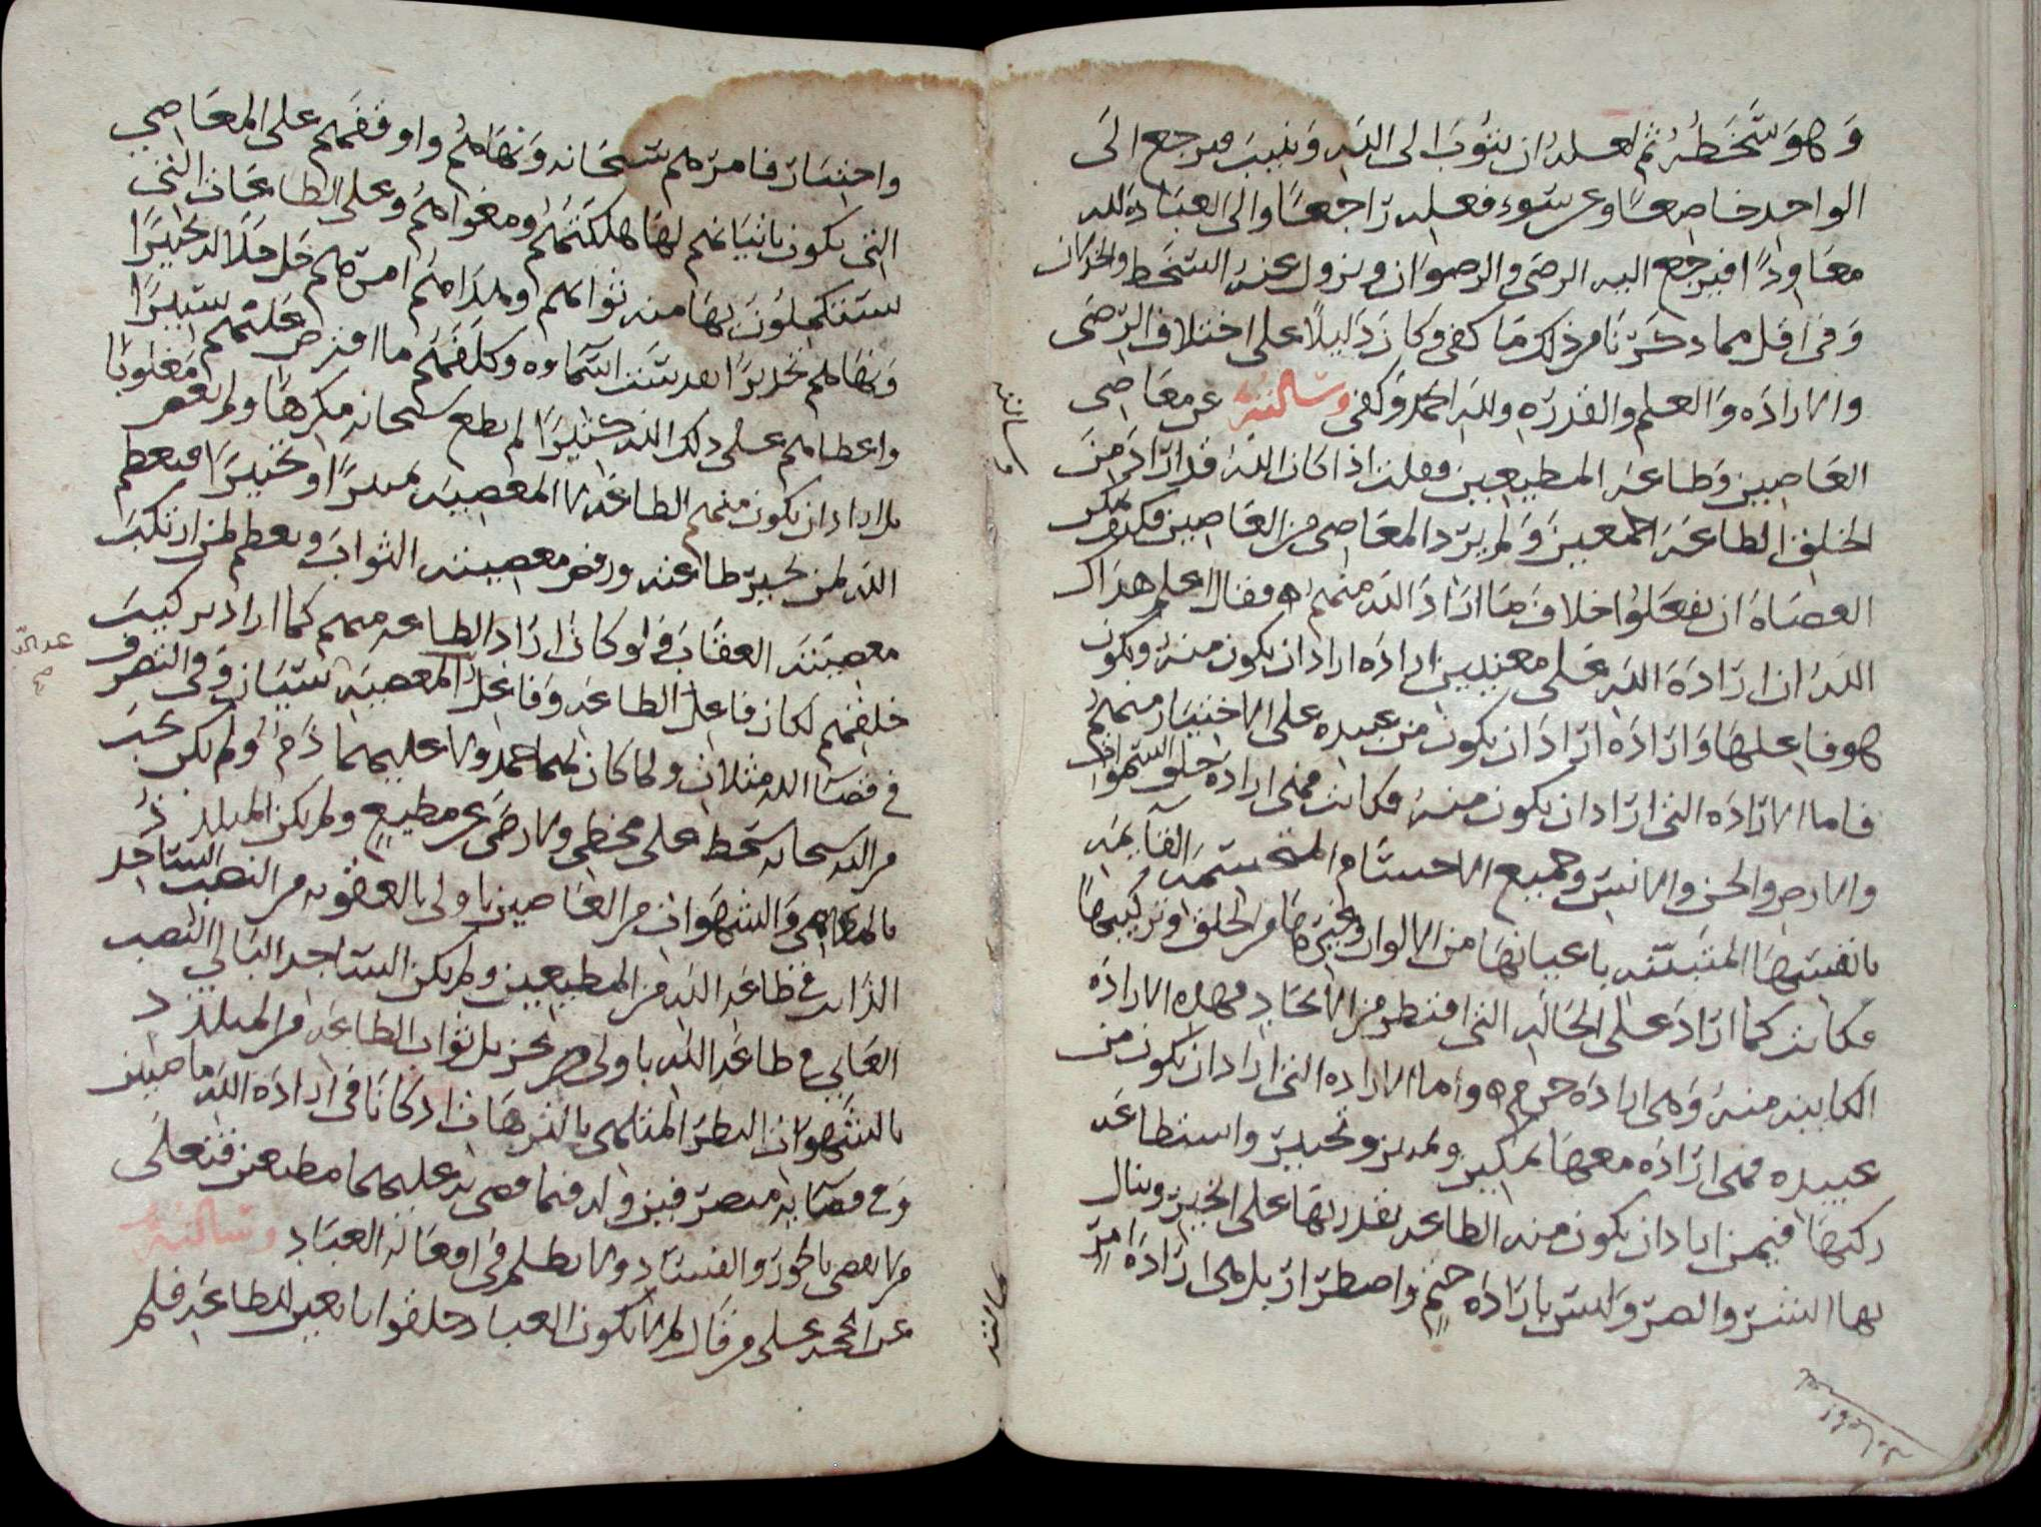 وهو سخطه ثم لعله ان يتوب الى الله وينيب فيرجع الى
الواحد خاضعا وعن سوء فعله راجعا والى العبادة لله
معاودا فيرجع اليه الرضى والرضوان ويزول عنه السخط والخذلان
وفى اقل مما ذكرنا من ذلك ما كفى وكان دليلا على اختلاف الرضى
والارادة والعلم والقدرة ولله الحمد وكفى وسالته عن معاصى
العاصين وطاعة المطيعين فقلت اذا كان الله قد اراد من
الخلق الطاعة اجمعين ولم يرد المعاصى من العاصين فكيف يمكن
العصاة ان يفعلوا خلاف ما اراد الله منهم فقال اعلم هداك
الله ان ارادة الله على معنيين ارادة اراد ان يكون منه ويكون
هو فاعلها وارادة اراد ان يكون من عبيده على الاختيار منهم
فاما الارادة التى اراد ان يكون منه فكانت فهى ارادة خلق السموات
والارض والجن والانس وجميع الاجسام المتجسمة القايمة
بانفسها المثبتة باعيانها من الالوان وغيرها من الخلق وتركيبها
فكانت كما اراد على الحالة التى افتطر من الايجاد فهذه الارادة
الكاينة منه وهى ارادة حتم واما الارادة التى اراد ان يكون من
عبيده فهى ارادة معها تمكين وتمييز وتخيير واستطاعة
ركبها فيمن اراد ان يكون منه الطاعة يقدر بها على الخير وينال
بها الشر والضر وليس بارادة حتم واضطرار بل هى ارادة امر
واختيار فامرهم سبحانه ونهاهم واوقفهم على المعاصى
التى يكون باتيانهم لها هلكتهم ومغواهم وعلى الطاعات التى
يستكملون بها منه ثوابهم وهداهم امرهم جل جلاله تخييرا
ونهاهم تحذيرا تقدست اسماوه وكلفهم ما افترض عليهم يسيرا
واعطاهم على ذلك الله كثيرا لم يطع سبحانه مكرها ولم يعص مغلوبا
بل اراد ان يكون منهم الطاعة لا المعصية تمييزا وتخييرا فيعطى
الله لمن تخير طاعته ورفض معصيته الثواب ويعطى لمن ارتكب
معصيته العقاب فلو كان اراد الطاعة منهم كما اراد تركيب
خلقهم لكان فاعل الطاعة وفاعل المعصية سيان وفى التصرف
فى قضا الله مثلان ولما كان لهما حمد ولا عليهما ذم ولم يكن يجب
من الله سبحانه سخط على مخطى ولا رضى عن مطيع ولم يكن المتلذذ
بالملاهى والشهوات من العاصين باولى بالعقوبة من النصب الساجد
الذاب فى طاعة الله من المطيعين ولم يكن الساجد التالى النصب
العانى فى طاعة الله باولى من جزيل ثواب الطاعة من المتلذذ
بالشهوات البطر المتلهى بالترهات اذ كانا فى ارادة الله ماضيين
وفى قضايه متصرفين وله فيما قضى به عليهما مطيعين فتعالى
من لا يقضى بالجور والفساد ولا يظلم فى افعاله العباد وسالته
عن الحجة على من قال لم لا يكون العباد خلقوا تابعين للطاعة فلم